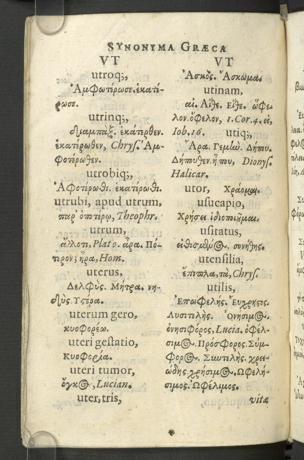 SYNONYMA GRÆCA
VT
utroq;,
Ἀμφοτέρωσε. ἑκατέ-
ρωσε.
utrinq;,
διαμπάξ. ἑκατέρθεν.
ἑκατέρωθεν, Chrys. Ἀμ-
φοτέρωθεν.
utrobiq;,
Ἀφοτέρωθι. ἑκατέρωθι.
utrubi, apud utrum,
παρ' ὁποτέρῳ, Theophr.
utrum,
ἄλλοτι, Plato. ἆρα. Πό-
τερον; ἦρα, Hom.
uterus,
Δελφύς. Μήτρα. νη-
δύς. Ὑστέρα.
uterum gero,
κυοφορέω.
uteri gestatio,
κυοφορία.
uteri tumor,
ὄγκος, Lucian.
uter, tris,
VT
Ἀσκός. Ἄσκωμα.
utinam,
αἰ. Αἴθε. Εἴθε. ὤφε-
λον. ὄφελον, 1. Cor. 4. εἰ,
Iob. 16.
utiq;,
Ἄρα. Δήπου.
Δήπουθεν. ἤ που, Dionys.
Halicar.
utor, χράομαι.
usucapio,
Χρήσει
usitatus,
εἰθισμένος. συνήθης.
utensilia,
ἔπιπλα, τὰ, Chrys.
utilis,
Ἐπωφελής. Εὔχρηστος.
Λυσιτελής. Ὀνήσιμος.
ὀνησιφόρος, Lucia. ὀφέλ-
σιμος. Πρόσφορος. Σύμ-
φορος. Συντελής. χρει-
ώδης. χρήσιμος. Ὠφελή-
σιμος. Ὠφέλιμος.
vita